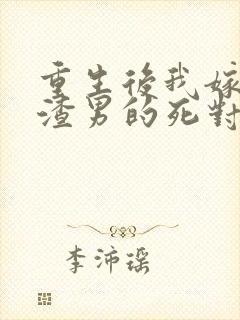 重生後我嫁
渣男的死對
李沛瑤